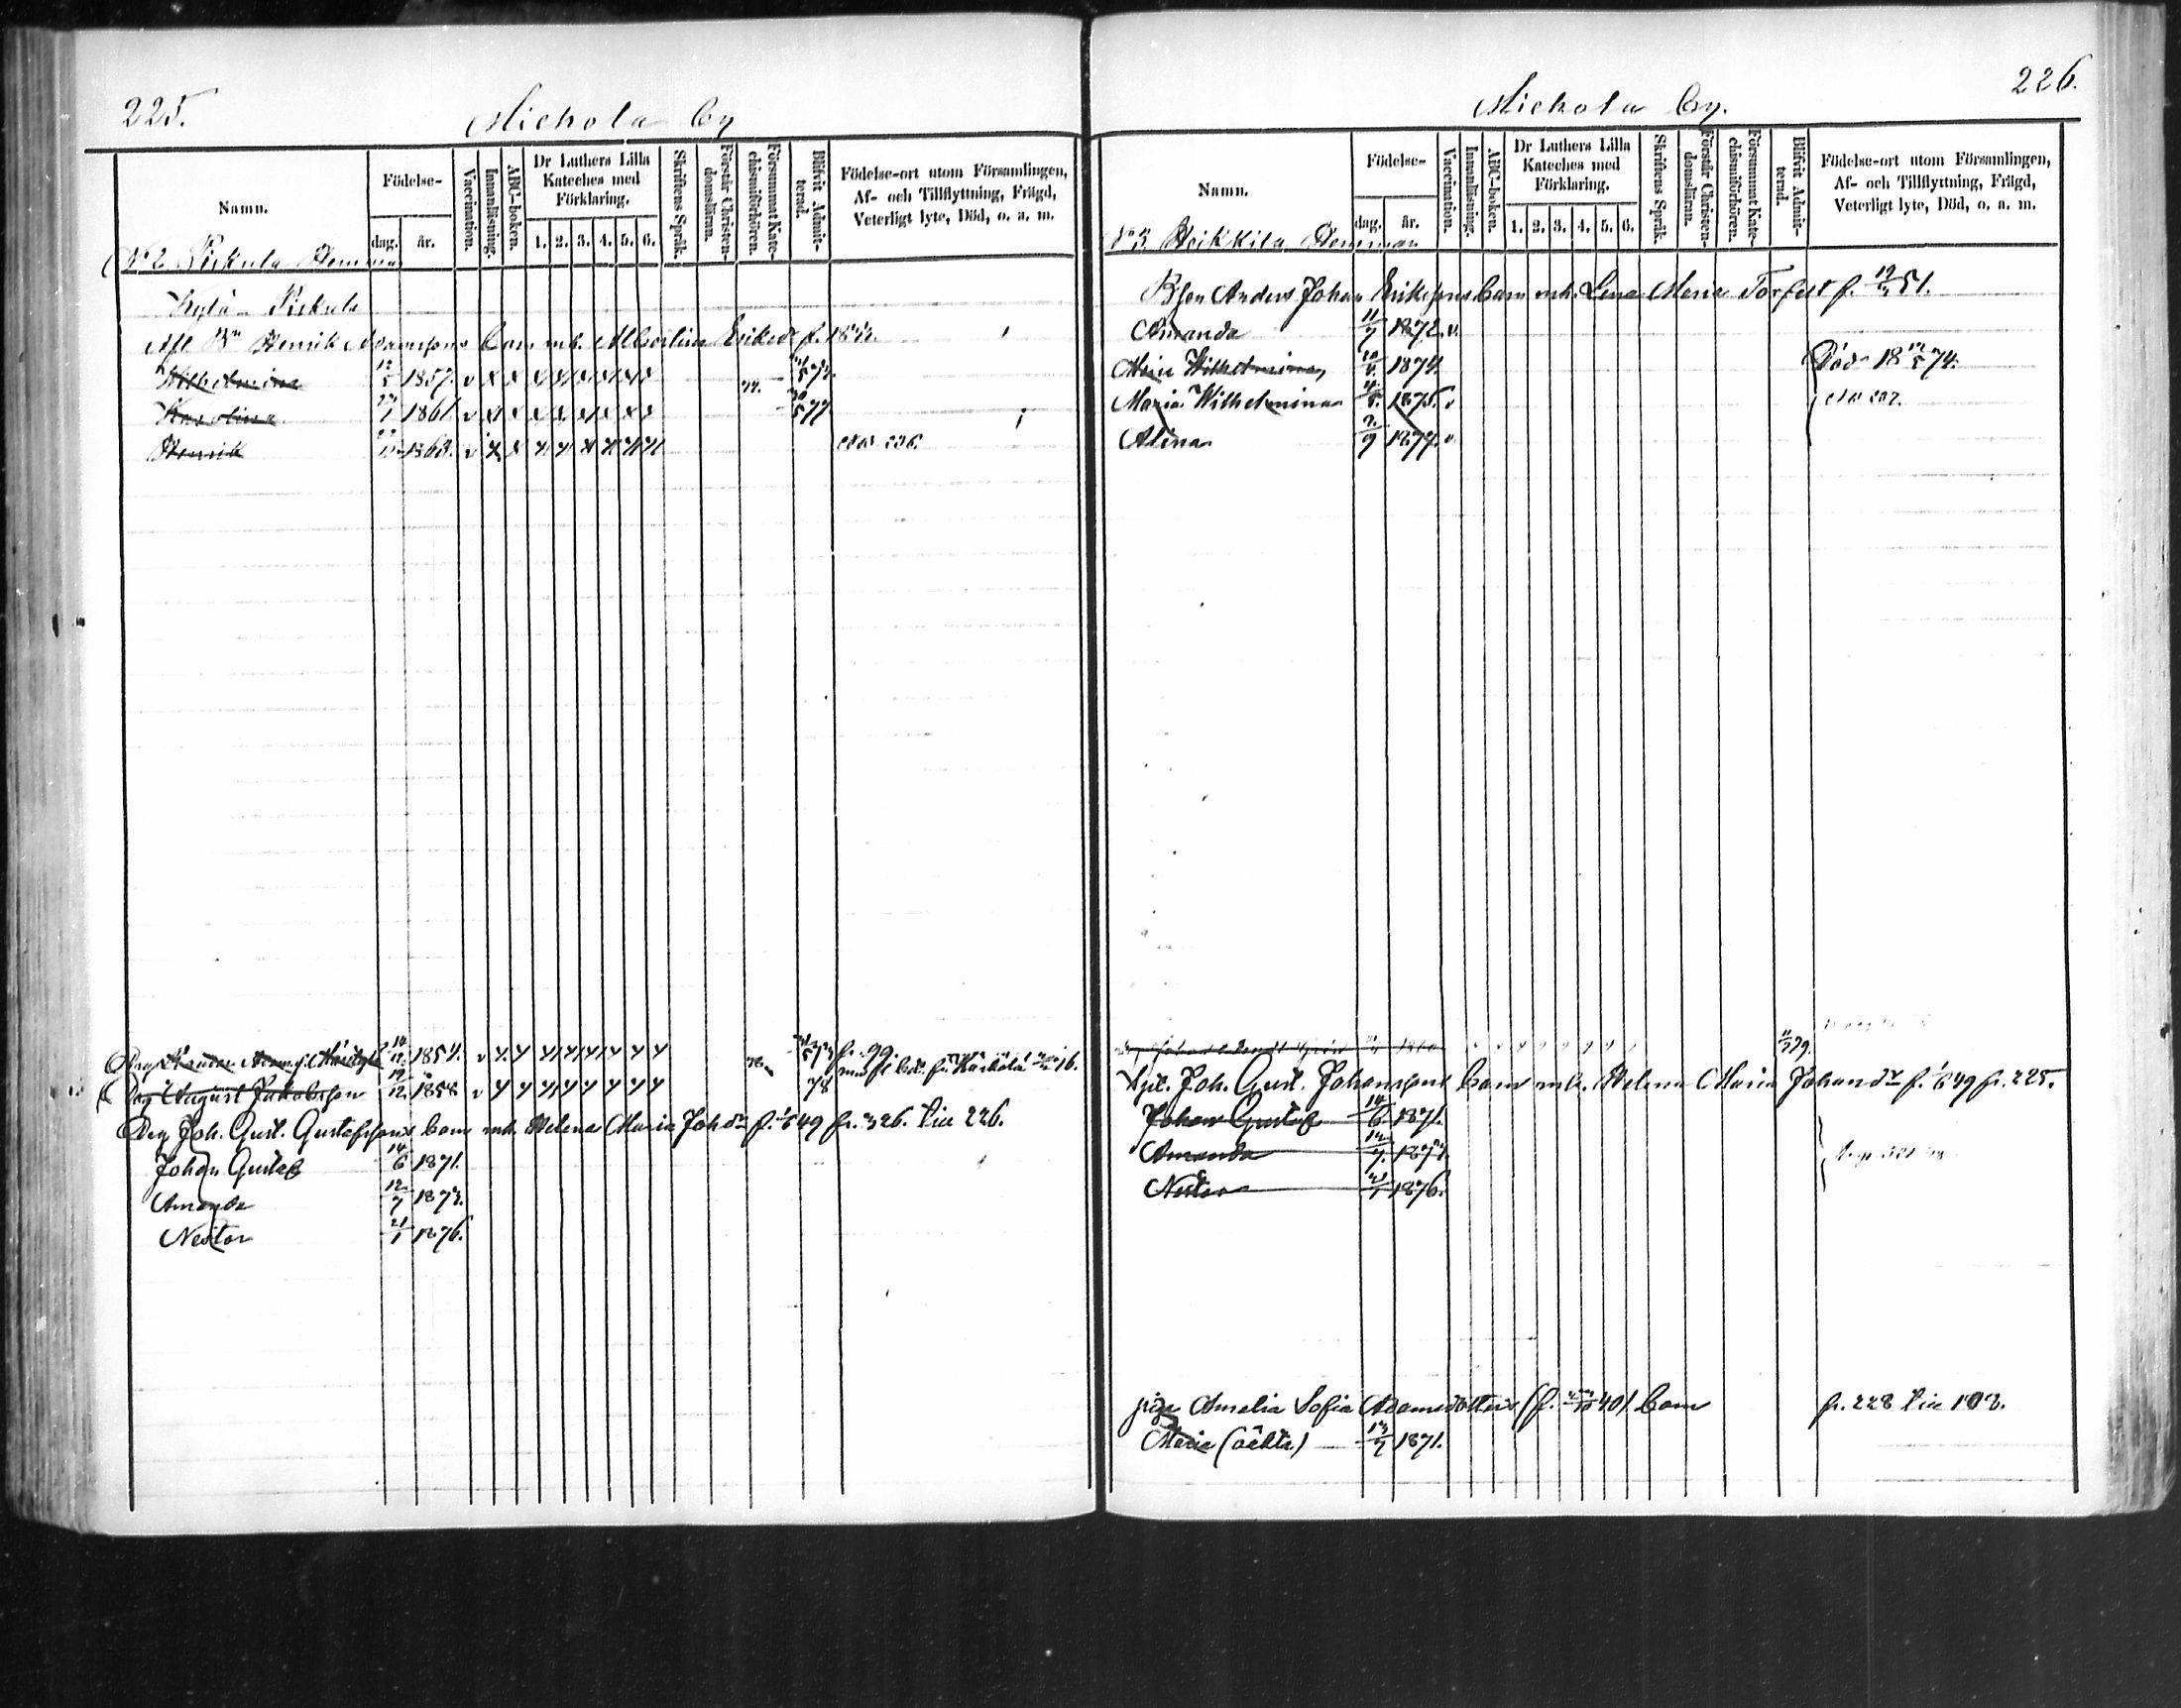 225.
Michola by
Namn.
Födelse-
dag.
år.
Vaccination.
Innanläsning.
ABC-boken.
Dr Luthers Lilla
Kateches med
Förklaring.
1. 2. 3. 4. 5. 6.
Skriftens Språk.
Förstår Christen-
domsläran.
Försummat Kate-
chismiförhören.
Blifvit Admit-
terad.
Födelse-ort utom Församlingen,
Af- och Tillflyttning, Frägd,
Veterligt lyte, Död, o. a. m.
No 2 Pickula Hemman
Kylä Pickula
Afl Bn Henrik Adamssons barn m. Albertina Eriksdr f.
Wilhelmina 12/5 1857. v x x x x x x x x
Karolina 1861. v x x x x x x x x 77
Henrik 1863. v x x x x x x x x
Drg 1854. v x x x x x x x x fr. 99.
Drg August Jakobsson 19/12 1858 v x x x x x x x x 78
Drg Joh. Gust. Gustafssons barn m. Helena Maria Joh dr f. 1/6 49 fr. 326. Till 226.
Johan Gustaf 14/6 1871.
Amanda 12/7 1873.
Nestor 21/1 1876.
226.
Michola by.
Namn.
Födelse-
dag.
år.
Vaccination.
Innanläsning.
ABC-boken.
Dr Luthers Lilla
Kateches med
Förklaring.
1. 2. 3. 4. 5. 6.
Skriftens Språk.
Förstår Christen-
domsläran.
Försummat Kate-
chismiförhören.
Blifvit Admit-
terad.
Födelse-ort utom Församlingen,
Af- och Tillflyttning, Frägd,
Veterligt lyte, Död, o. a. m.
No 3 Heikkila Hemman
Bson Anders Johan Erikssons barn m. Lena Maria Torfelt f. 51.
Amanda 11/7 1872. v.
Wilhelmina 1874. Död 18 12/5 74.
Maria Wilhelmina 1875. v
Alina 1877. v
79.
Joh. Gust. Johanssons barn m. Helena Maria Johansdr f. 1/6 49 fr. 225.
Johan Gustaf 14/6 1871.
Amanda 12/7 1873.
Nestor 21/1 1876.
piga Amalia Sofia Adamsdotters (f. 40) barn fr. 228
Maria (oäkta) 13/7 1871.